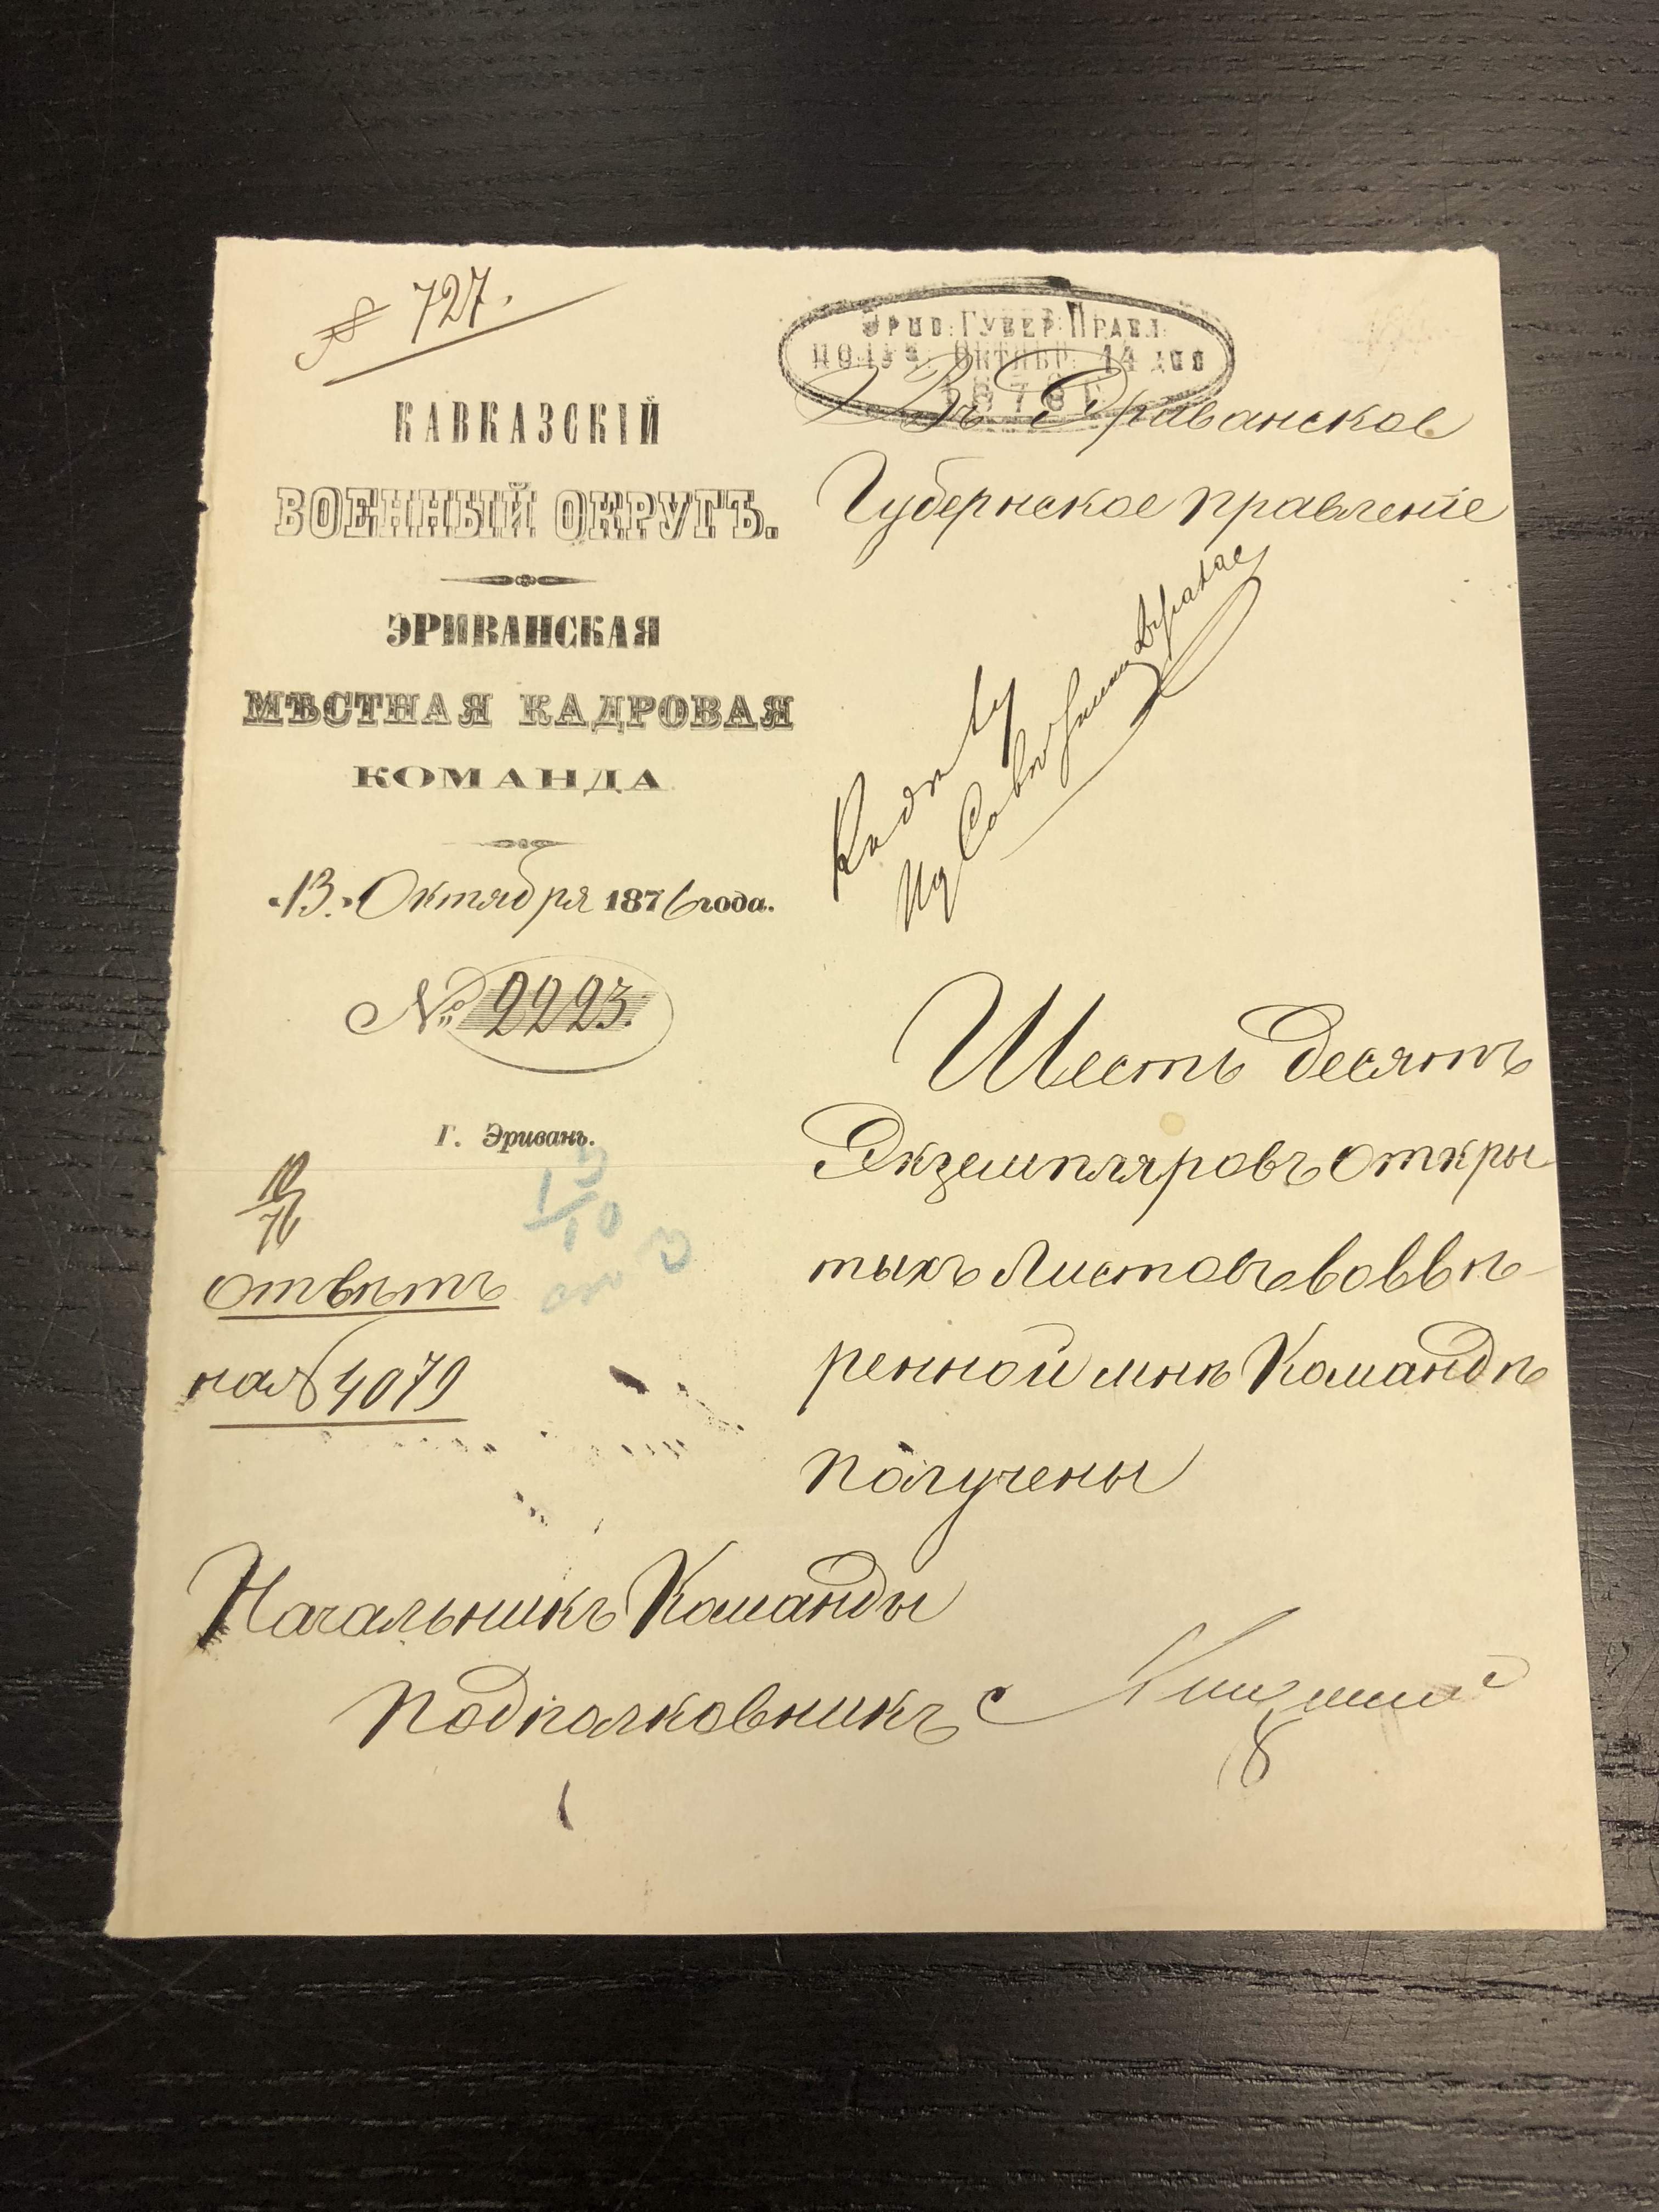 № 727.
КАВКАЗСКІЙ
ВОЕННЫЙ ОКРУГЪ.
ЭРИВАНСКАЯ
МѢСТНАЯ КАДРОВАЯ
КОМАНДА
«13» Октября 1876 года.
№ 2223.
Г. Эривань.
отвѣтъ
на № 4079
ЭРИВ. ГУБЕР. ПРАВЛ.
ПОЛУЧ. ОКТЯБР. 14 ДНЯ
1876 Г.
Въ Эриванское
Губернское Правленіе
Къ дѣлу
Шесть десятъ
Экземпляровъ откры
тыхъ Листовъ во ввѣ-
ренной мнѣ Командѣ
получены
Начальникъ Команды
Подполковникъ